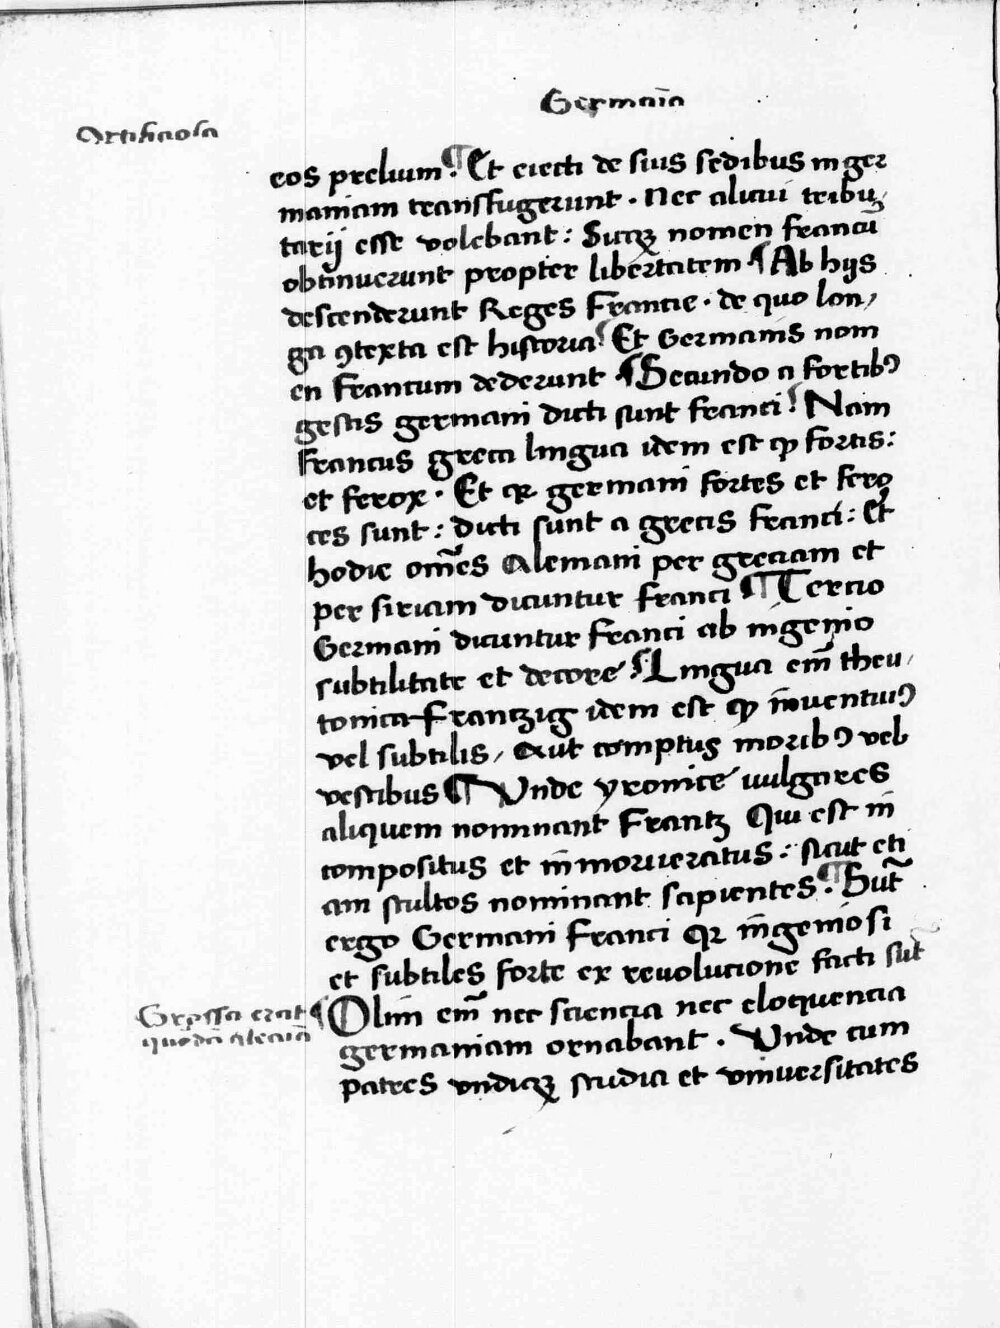 Germaīa
Artificiosa
eos prelium. ¶ Et eiecti de suis sedibus in ger
maniam transfugerunt. Nec alicui tribu,
tarij esse volebant: Sicqꝫ nomen francū
obtinuerunt propter libertatem ¶ Ab hijs
descenderunt Reges Francie. de quo lon,
ga ꝯtexta est historia ¶ Et Germanis nom
en Francum dederunt. ¶ Secundo a fortibꝰ
gestis germani dicti sunt franci: Nam
Francus greca lingua idem est qꝫ fortis:
et ferox. Et qꝛ germani fortes et fero
ces sunt: dicti sunt a grecis franci: Et
hodie om̃es Alemani per greciam et
per siriam dicuntur franci ¶ Tercio
Germani dicuntur franci ab ingenio
subtilitate et decore ¶ Lingua em̃ theu,
tonica Frantzig idem est qꝫ inuentiuꝰ
vel subtilis, Aut comptus moribꝰ vel
vestibus ¶ Vnde yronice uulgares
aliquem nominant Frantz Qui est in
compositus et inmorieratus: sicut eti
am stultos nominant sapientes. ¶ Sut̃
ergo Germani franci qꝛ ingeniosi
et subtiles forte ex reuolucione facti sut̃
Grossa erat
quōdā alecaīa
¶ Olim em̃ nec sciencia nec eloquencia
germaniam ornabant. Vnde cum
patres vndiqꝫ studia et vniuersitates